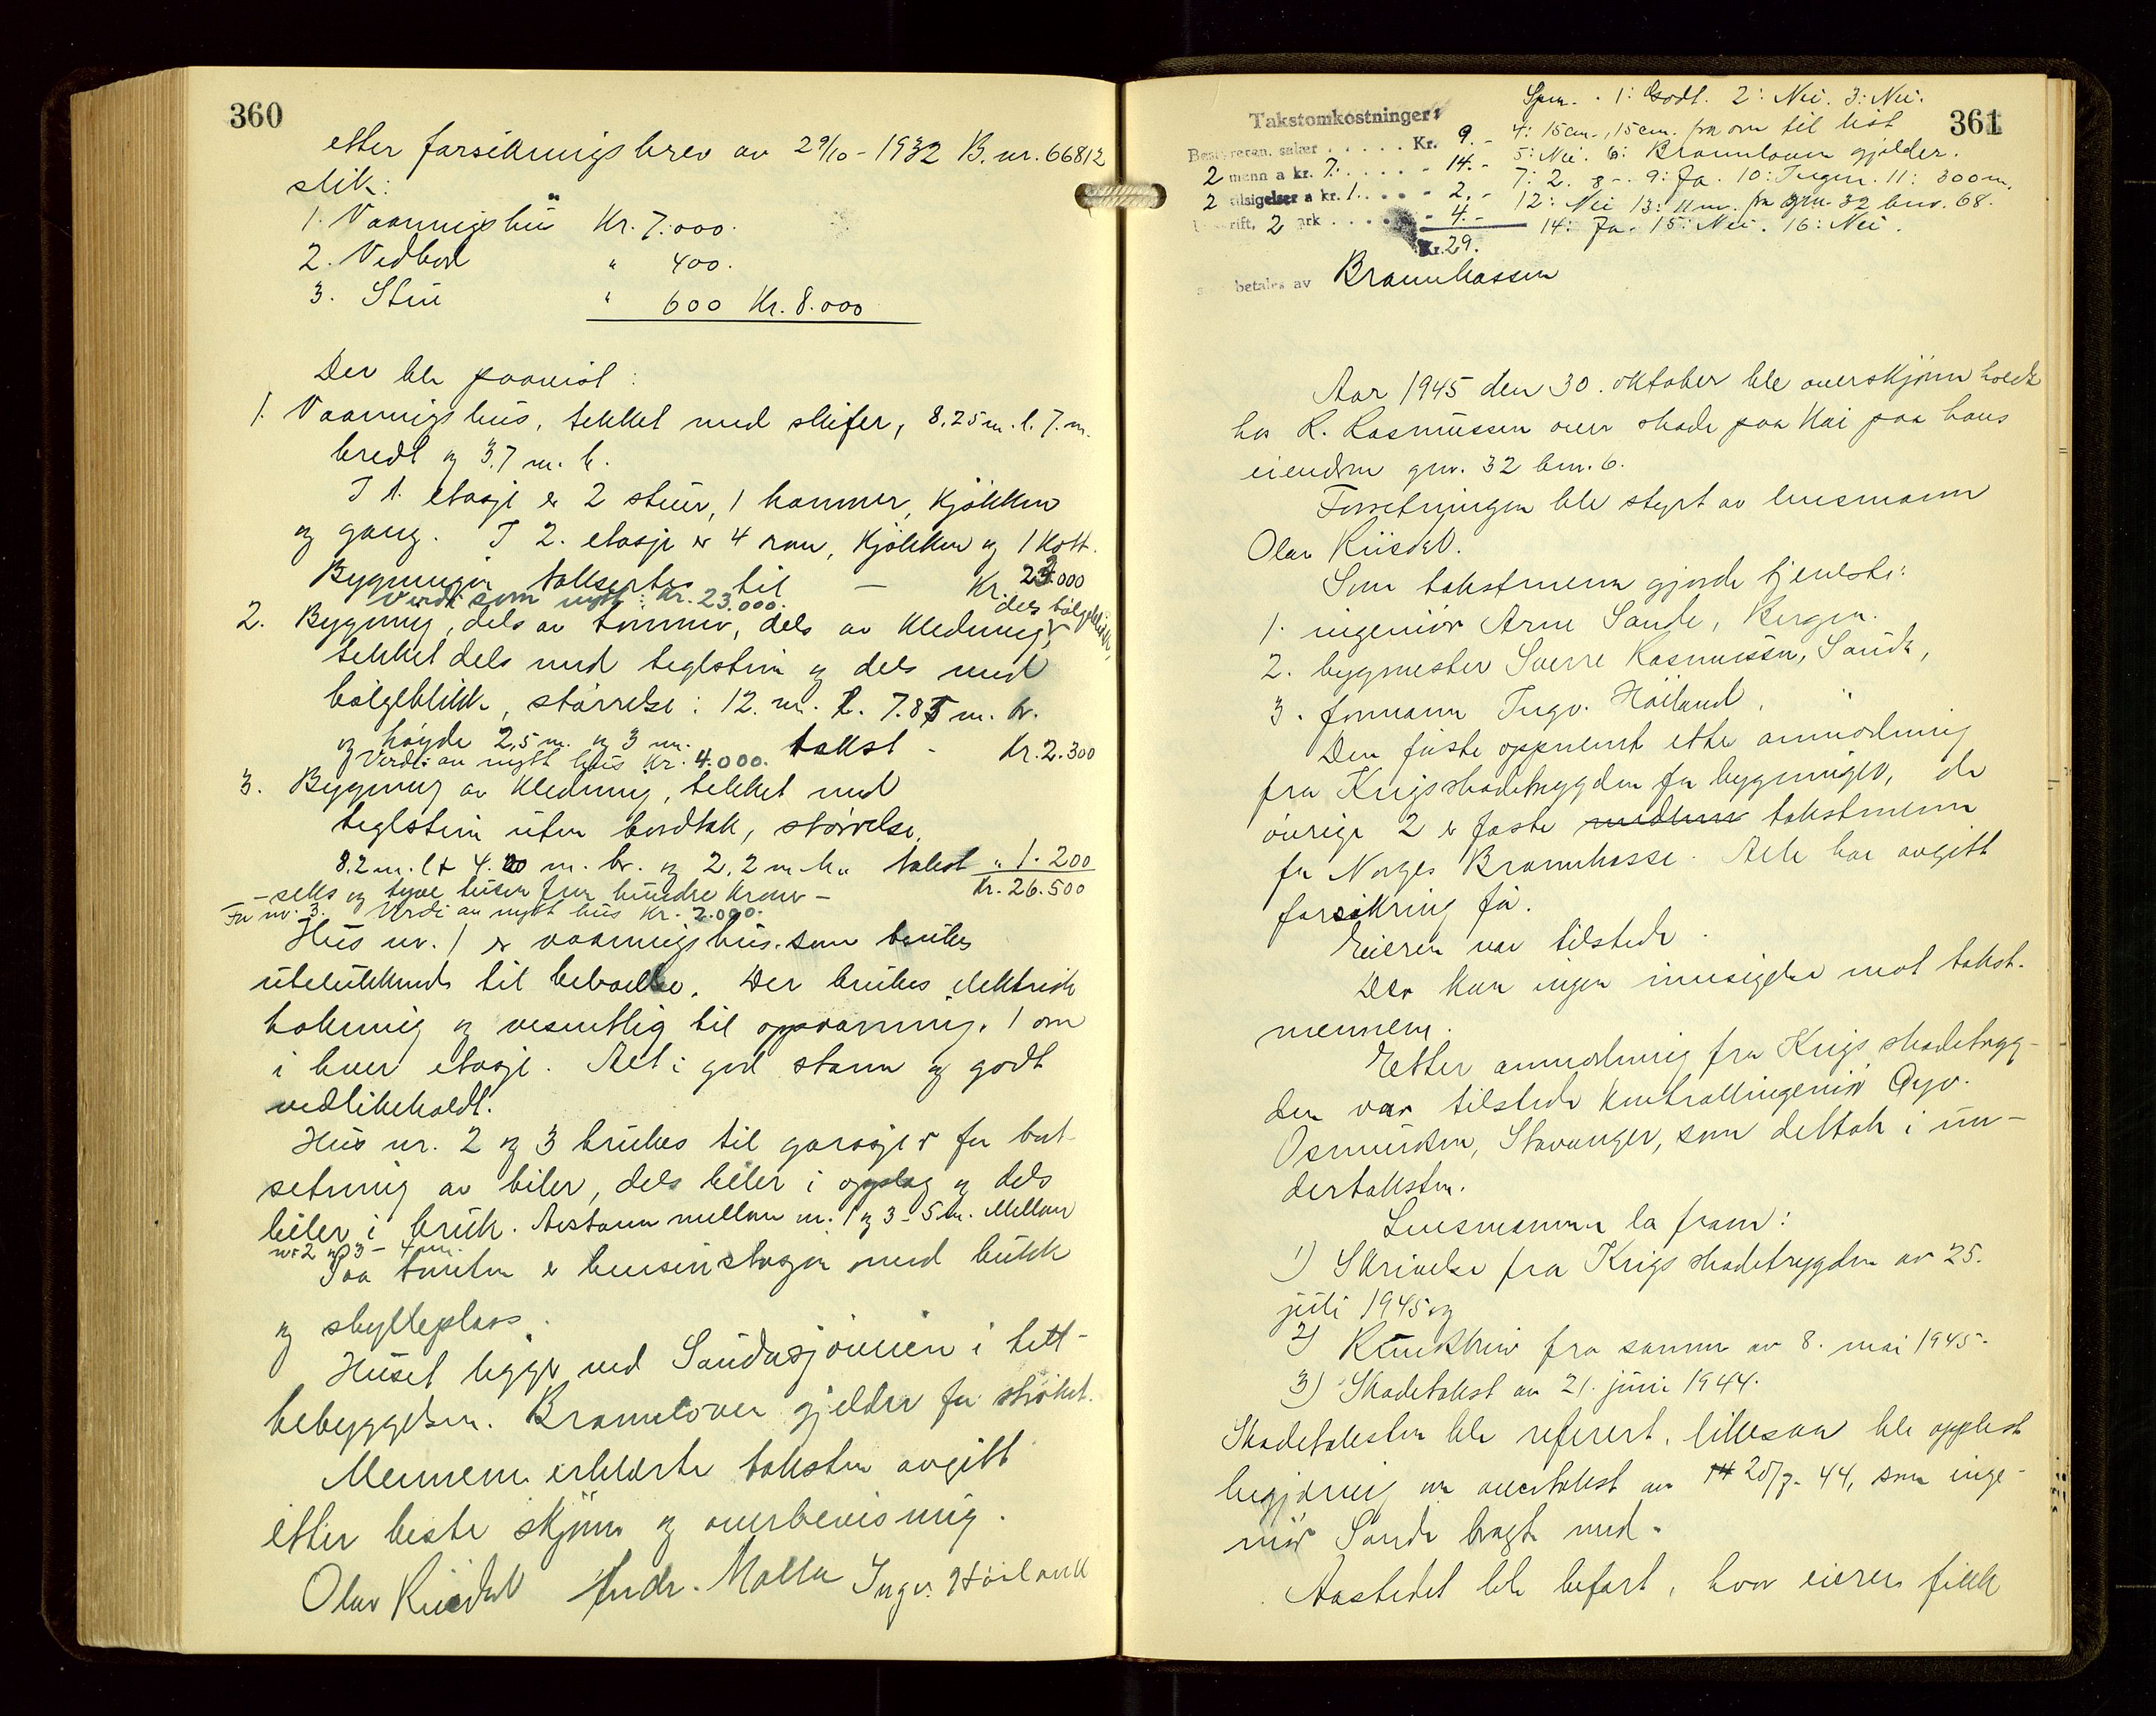 360
etter forsikringsbrev av 29/10-1932 B. nr. 66812
slik:
1. Vaaningshus Kr. 7.000.
2. Vedbod " 400.
3. Stue " 600 Kr. 8.000
Der ble paavist:
1. Vaaningshus, tekket med skifer, 8,25 m. l. 7. m.
bredt og 3.7 m. h.
I 1. etasje er 2 stuer, 1 kammer, kjøkken
og gang. I 2. etasje er 4 rom, kjøkken og 1 kott.
Bygningen takseres til — Kr. 23.000
Verdi som nytt: Kr. 23.000.
2. Bygning, dels av tømmer, dels av kledning, dels bølgeblikk,
tekket dels med teglstein og dels med
bølgeblikk, størrelse: 12. m. l. 7.85 m. br.
og høyde 2,5 m. og 3 m. takst - Kr. 2.300
Verdi av nytt hus Kr. 4.000.
3. Bygning av kledning, tekket med
teglstein uten bordtak, størrelse
8.2 m. l. 4.20 m. br. og 2,2 m h. takst " 1.200
- seks og tyve tusen fem hundre kroner - Kr. 26.500
For nr. 3. Verdi av nytt hus Kr. 2.000.
Hus nr. 1 er vaaningshus som brukes
utelukkende til beboelse. Der brukes elektrisk
kokning og vesentlig til oppvarming. 1 ovn
i hver etasje. Alt i god stann og godt
vedlikeholdt.
Hus nr. 2 og 3 brukes til garasjer for bort-
setning av biler, dels biler i opplag og dels
biler i bruk. Avstann mellom nr. 1 og 3 - 5 m. Mellom
nr 2 og 3 - 4 m.
Paa tomten er bensinstasjon med butikk
og skytteplass.
Huset ligger ved Saudasjøveien i tett-
bebyggelsen. Brannloven gjelder for strøket.
Mennene erklærte taksten avgitt
etter beste skjønn og overbevisning.
Olav Riisdal Andr. Malla Ingv. Høiland
361
Takstomkostninger:
Bestyreren, salær . . . . . Kr. 9.-
2 menn a kr. 7. . . . . - 14.-
2 tilsigelser a kr. 1. . . . - 2.-
Utskrift, 2 ark . . . . - 4.-
Kr. 29.
som betales av Brannkassen
Spm. 1: Godt. 2: Nei. 3: Nei.
4: 15 cm., 15 cm. fra ovn til list
5: Nei. 6: Brannloven gjelder.
7: 2. 8 -. 9: Ja. 10: Ingen. 11: 300 m.
12: Nei 13: 11 m. fra gnr. 32 bnr. 68.
14: Ja. 15: Nei. 16: Nei.
Aar 1945 den 30. oktober ble overskjønn holdt
hos R. Rasmussen over skade paa kai paa hans
eiendom gnr. 32 bnr. 6.
Forretningen ble styrt av lensmann
Olav Riisdal.
Som takstmenn gjorde tjeneste:
1. ingeniør Arne Sande, Bergen.
2. bygmester Sverre Rasmussen, Sauda,
3. formann Ingv. Høiland, "
Den første oppnevnt etter anmodning
fra Krigsskadetrygden for bygninger, de
øvrige 2 er faste medlem takstmenn
for Norges Brannkasse. Alle har avgitt
forsikring før.
Eieren var tilstede.
Der kom ingen innsigelse mot takst-
mennene.
Etter anmodning fra Krigsskadetryg-
den var tilstede kontrollingeniør Øyv.
Osmundsen, Stavanger, som deltok i un-
dertaksten.
Lensmannen la fram:
1) Skrivelse fra Krigsskadetrygden av 25.
juli 1945 og
2) Rundskriv fra samme av 8. mai 1945.
3) Skadetakst av 21. juni 1944.
Skadetaksten ble referert, likesaa ble opplest
begjæring om overtakst av 14 20/7-44, som inge-
niør Sande bragte med.
Aastedet ble befart, hvor eieren fikk